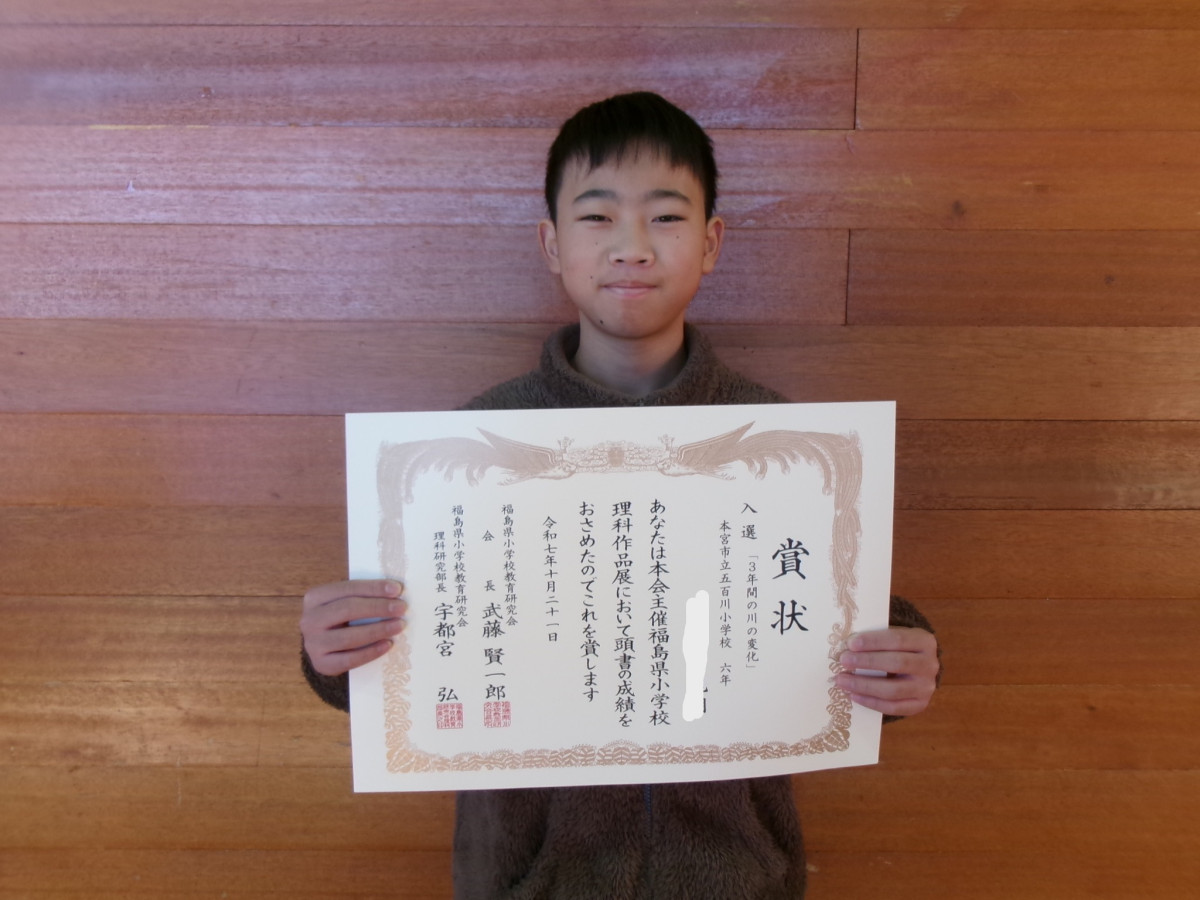 賞状
入選 「3年間の川の変化」
本宮市立五百川小学校 六年
あなたは本会主催福島県小学校
理科作品展において頭書の成績を
おさめたのでこれを賞します
令和七年十月二十一日
福島県小学校教育研究会
会長 武藤賢一郎
福島県小学校教育研究会
理科研究部長 宇都宮 弘